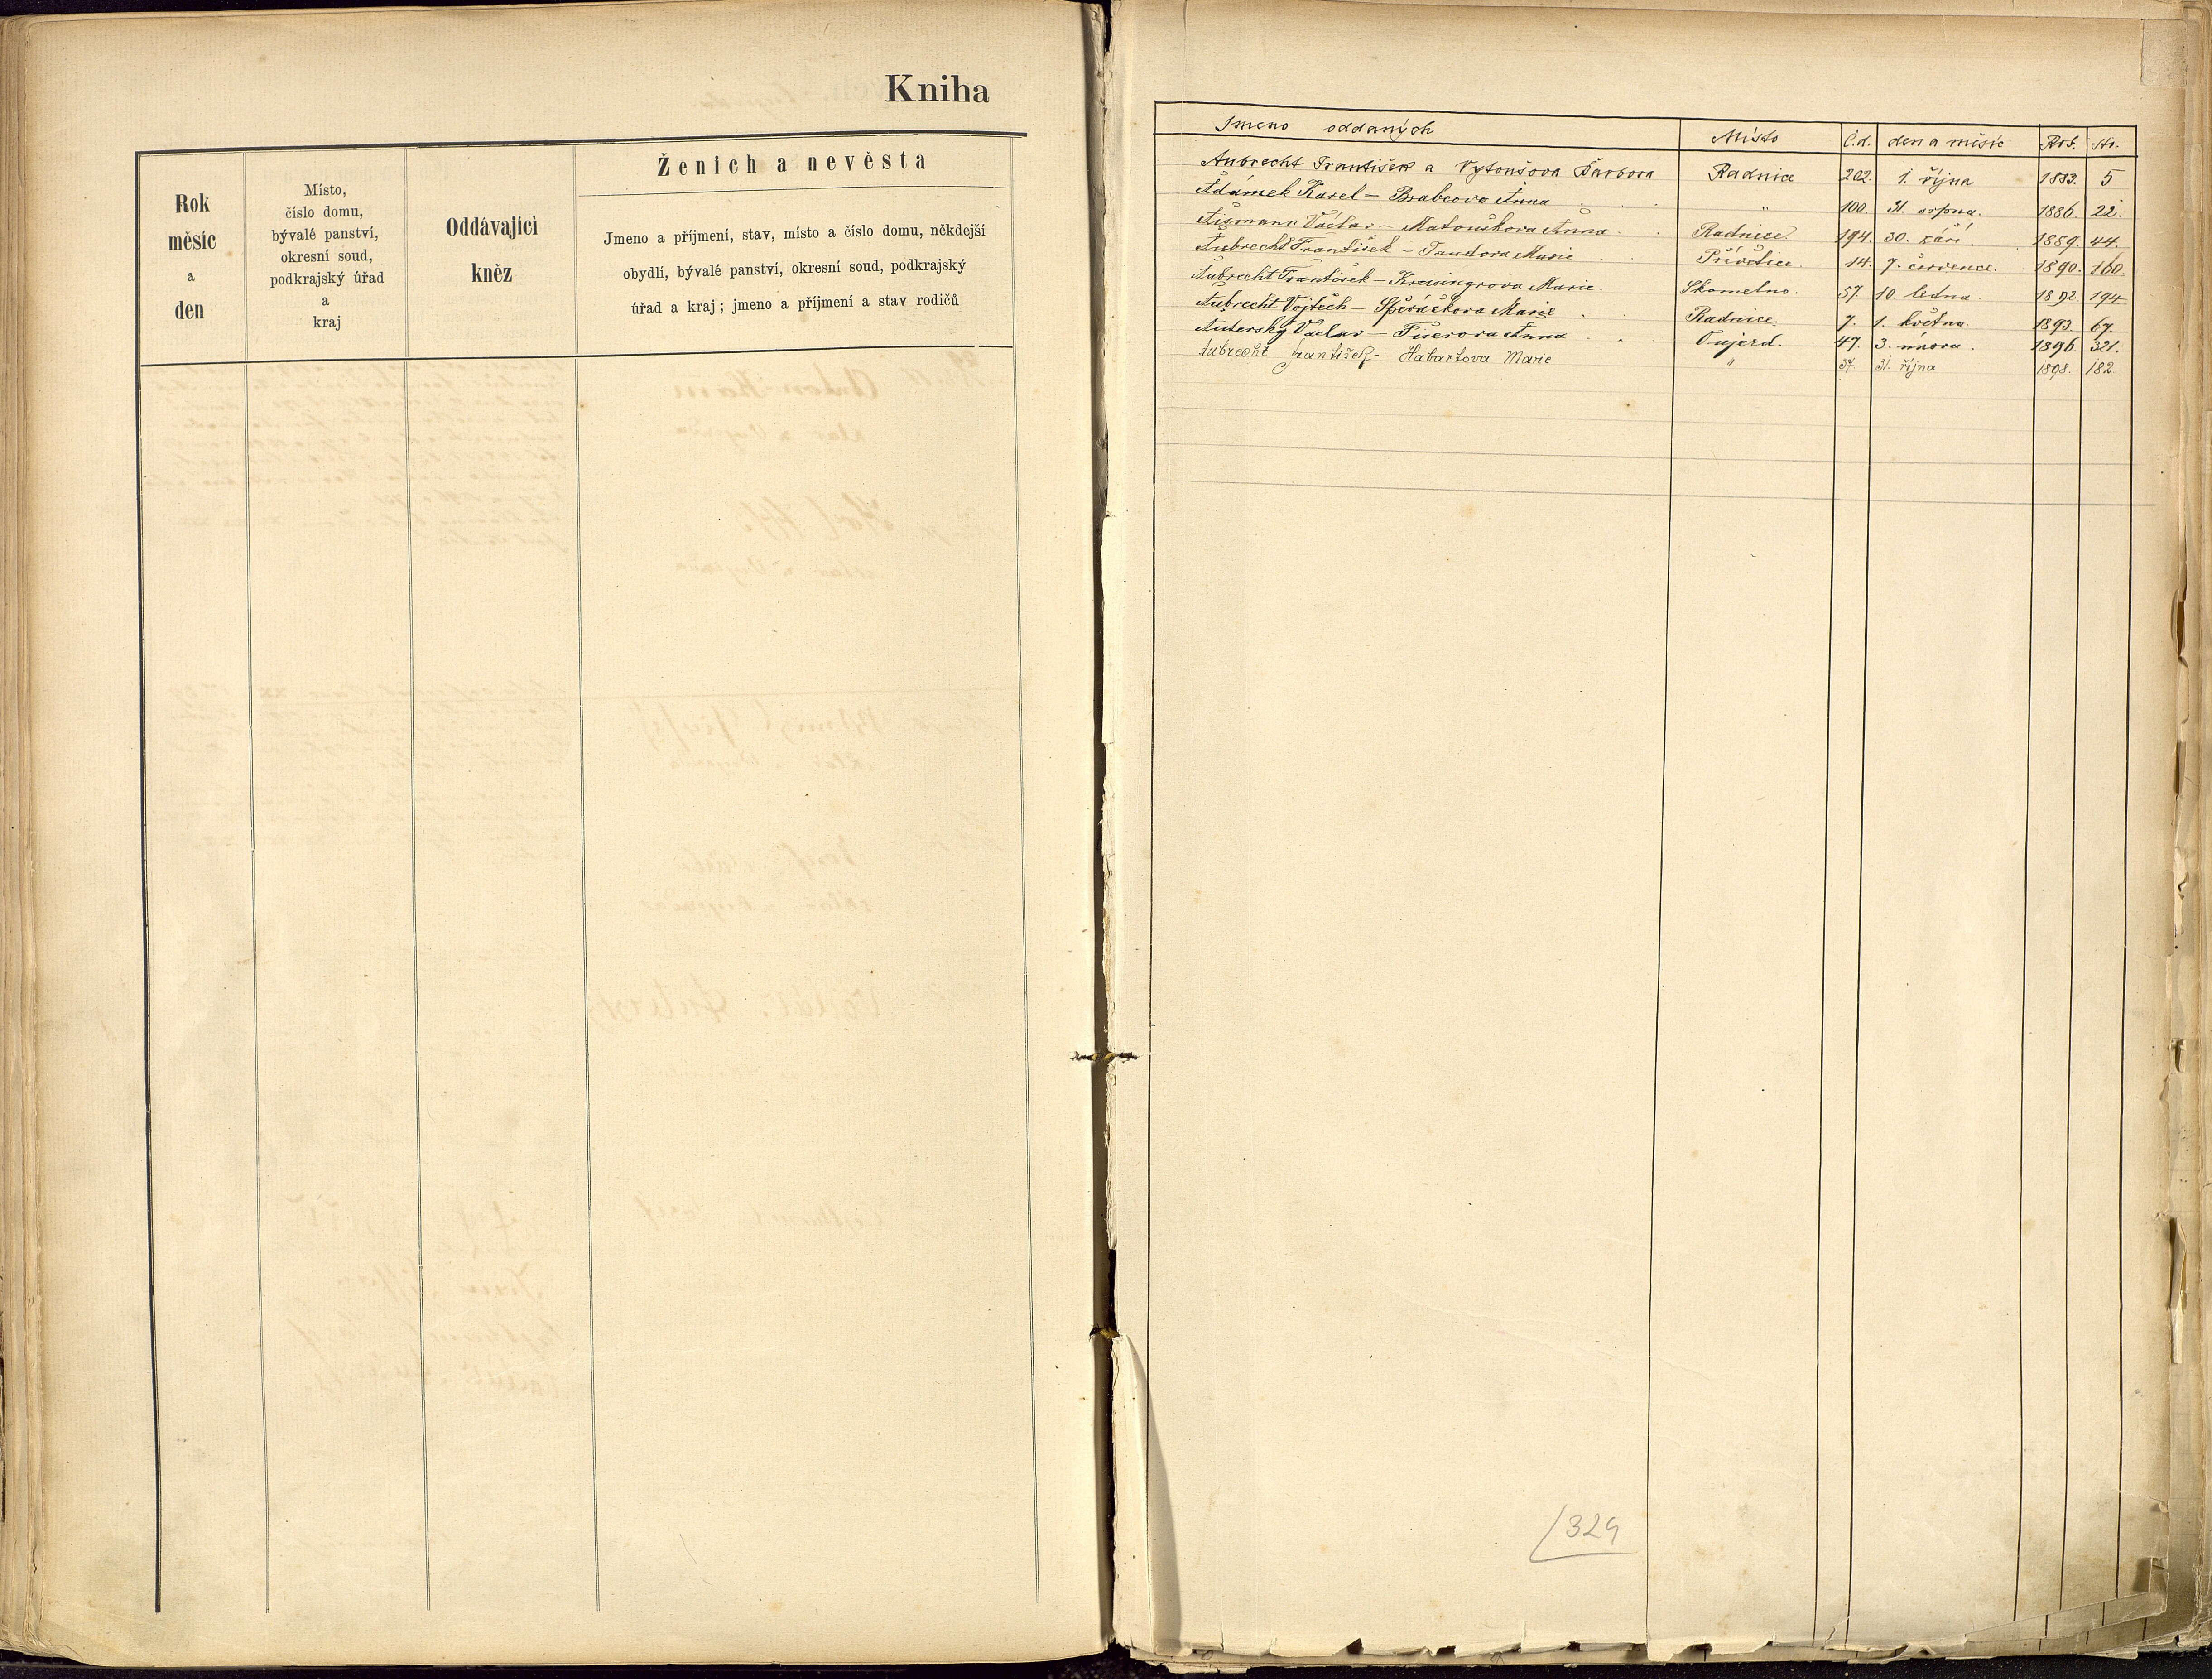 Kniha
Rok
měsíc
a
den
Místo,
číslo domu,
bývalé panství,
okresní soud,
podkrajský úřad
a
kraj
Oddávající
kněz
Ženich a nevěsta
Jmeno a příjmení, stav, místo a číslo domu, někdejší
obydlí, bývalé panství, okresní soud, podkrajský
úřad a kraj; jmeno a příjmení a stav rodičů
Jmeno oddaných Místo Č.d. den a měsíc Rok. Str.
Aubrecht František a Vytoušova Barbora Radnice 202. 1. října 1883. 5
Adámek Karel – Brabcova Anna " 100. 31. srpna. 1886. 22.
Aismann Václav – Matouškova Anna Radnice 194. 30. září 1889. 44.
Aubrecht František – Tandora Marie Přívětice. 14. 7. července. 1890. 160.
Aubrecht František – Kreisingrova Marie. Skomelno. 57. 10. ledna. 1892. 194
Aubrecht Vojtěch – Špiráčkova Marie Radnice. 7. 1. května 1893. 67.
Auterský Václav – Fišerova Anna Vujezd. 47. 3. února. 1896. 321.
Aubrecht František – Habartova Marie " 37. 31. října 1898. 182.
329